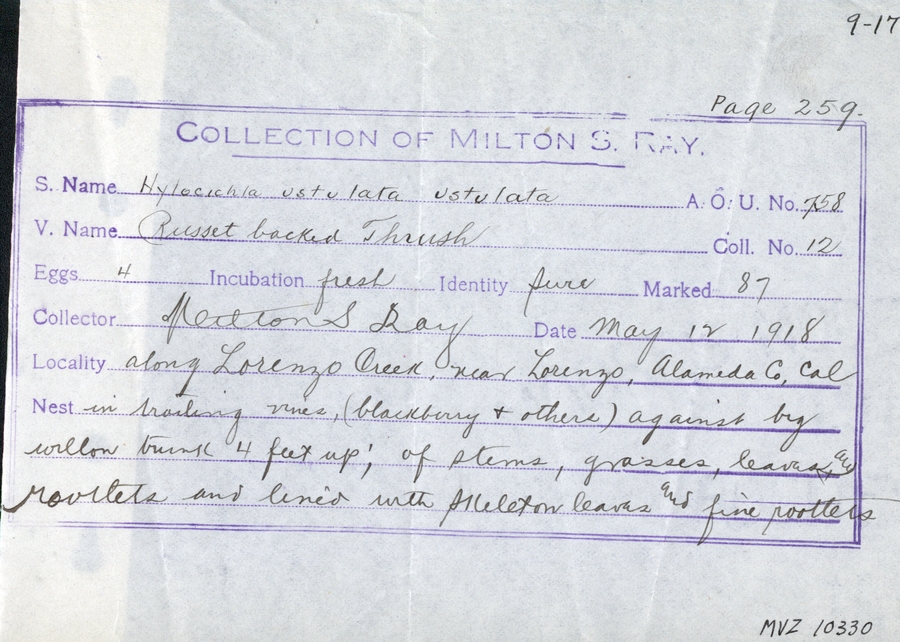 9-17
Page 259.
COLLECTION OF MILTON S. RAY.
S. Name Hylocichla ustulata ustulata A. O. U. No. 758
V. Name Russet backed Thrush Coll. No. 12
Eggs 4 Incubation fresh Identity pure Marked 87
Collector Milton S Ray Date May 12 1918
Locality along Lorenzo Creek, near Lorenzo, Alameda Co, Cal
Nest in trailing vines, (blackberry + others) against big
willow trunk 4 feet up; of stems, grasses, leaves, and
rootlets and lined with skeleton leaves and fine rootlets
MVZ 10330